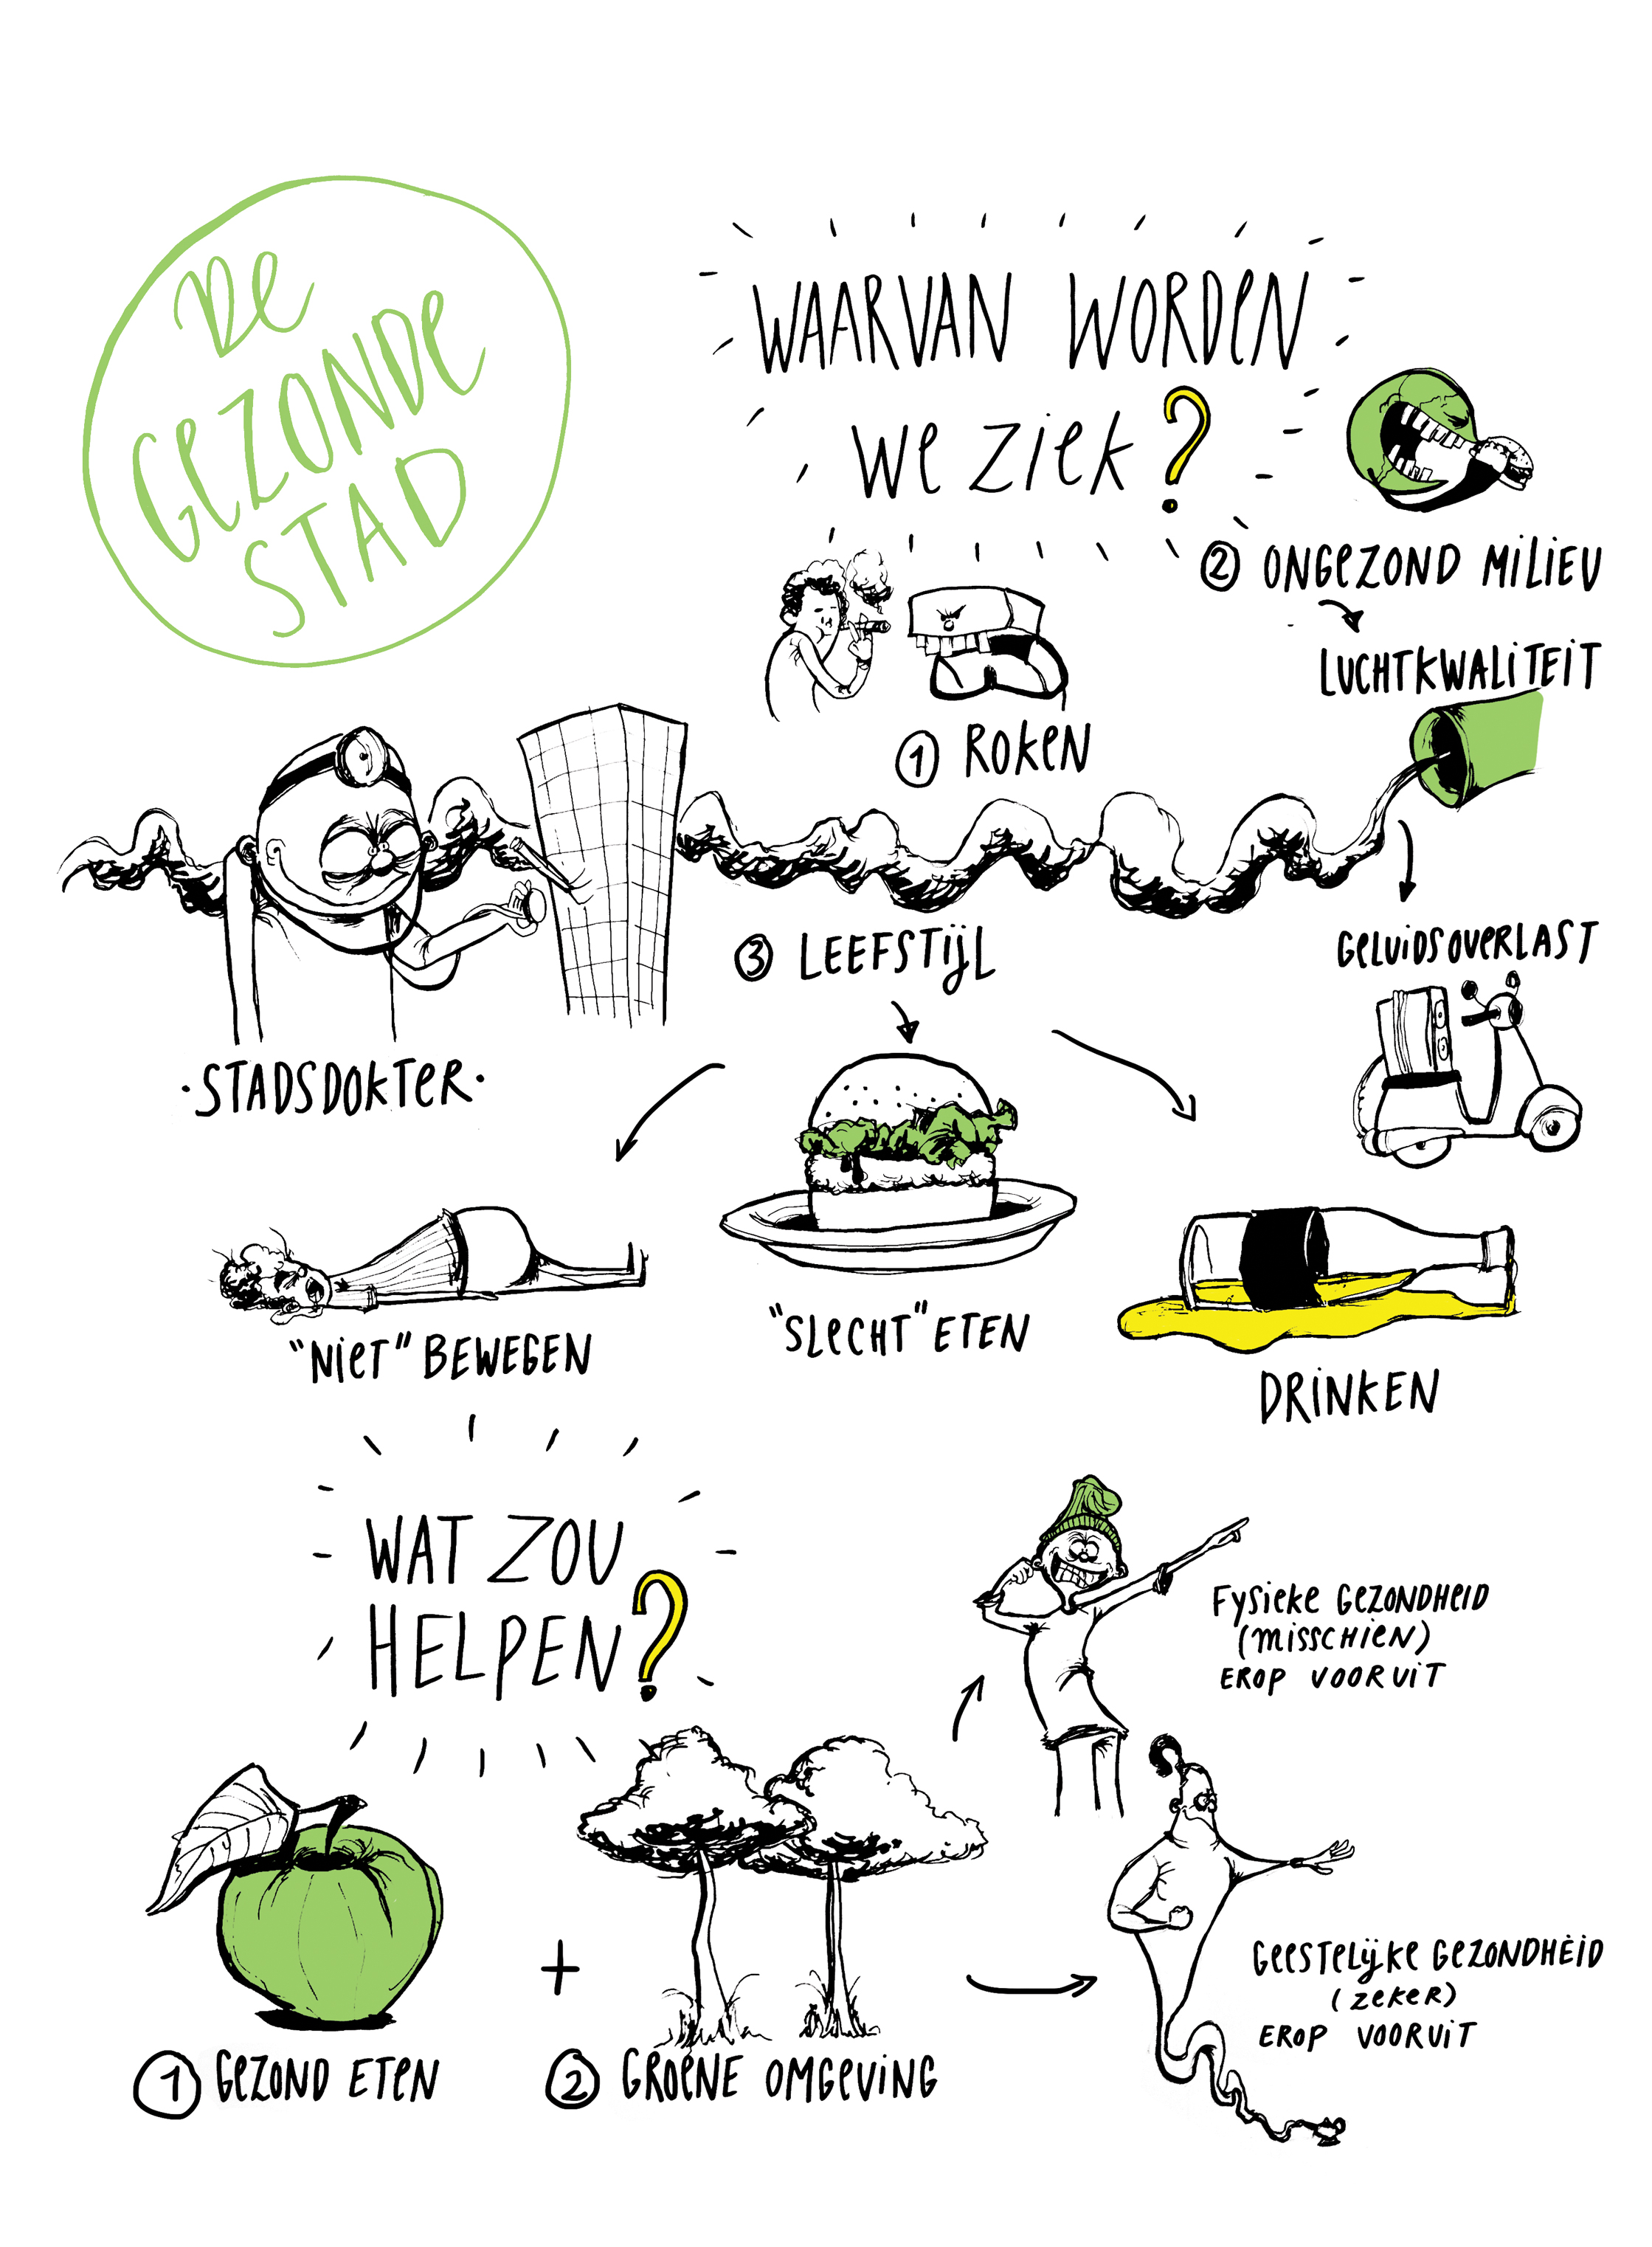 De
GEZONDE
STAD
WAARVAN WORDEN
WE ZIEK?
① ROKEN
② ONGEZOND MILIEU
LUCHTKWALITEIT
GELUIDSOVERLAST
·STADSDOKTER·
③ LEEFSTIJL
"NIET" BEWEGEN
"SLECHT" ETEN
DRINKEN
WAT ZOU
HELPEN?
① GEZOND ETEN
+
② GROENE OMGEVING
FYSIEKE GEZONDHEID
(MISSCHIEN)
EROP VOORUIT
GEESTELIJKE GEZONDHEID
(ZEKER)
EROP VOORUIT